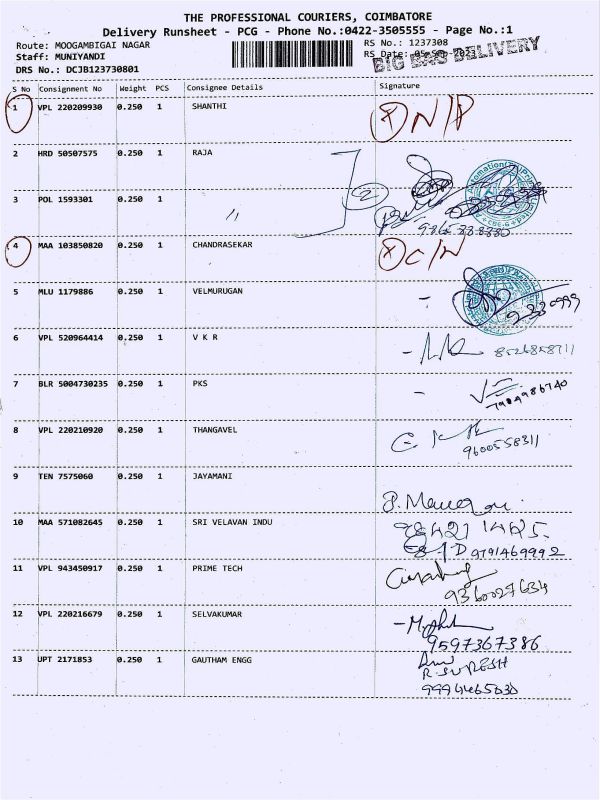 THE PROFESSIONAL COURIERS, COIMBATORE
Delivery Runsheet - PCG - Phone No.:0422-3505555 - Page No.:1
Route: MOOGAMBIGAI NAGAR
RS No.: 1237308
Staff: MUNIYANDI
RS Date: 05-Sep-2023
BIG BAG DELIVERY
DRS No.: DCJB123730801
S No Consignment No Weight PCS Consignee Details Signature
1 VPL 220209930 0.250 1 SHANTHI
N/P
2 HRD 50507575 0.250 1 RAJA
2
3 POL 1593301 0.250 1 //
4 MAA 103850820 0.250 1 CHANDRASEKAR
C/N
5 MLU 1179886 0.250 1 VELMURUGAN
6 VPL 520964414 0.250 1 V K R
8526858711
7 BLR 5004730235 0.250 1 PKS
7904986740
8 VPL 220210920 0.250 1 THANGAVEL
9600558311
9 TEN 7575060 0.250 1 JAYAMANI
10 MAA 571082645 0.250 1 SRI VELAVAN INDU
98421 1425.
9791469992
11 VPL 943450917 0.250 1 PRIME TECH
9360027634
12 VPL 220216679 0.250 1 SELVAKUMAR
9597367386
13 UPT 2171853 0.250 1 GAUTHAM ENGG
R.SURESH
9994465030